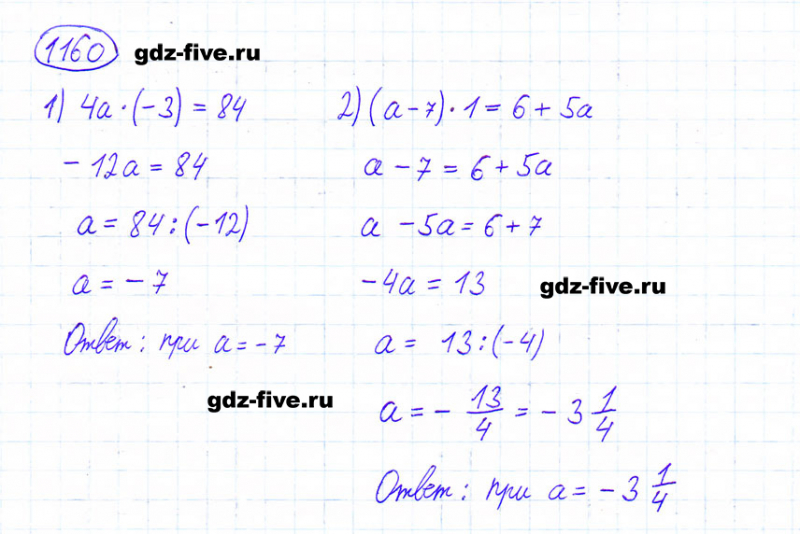 1160 gdz-five.ru
1) 4a · (-3) = 84
- 12a = 84
a = 84 : (-12)
a = - 7
Ответ: при a = -7
gdz-five.ru
2) (a - 7) · 1 = 6 + 5a
a - 7 = 6 + 5a
a - 5a = 6 + 7
-4a = 13
gdz-five.ru
a = 13 : (-4)
a = - 13/4 = - 3 1/4
Ответ: при a = - 3 1/4